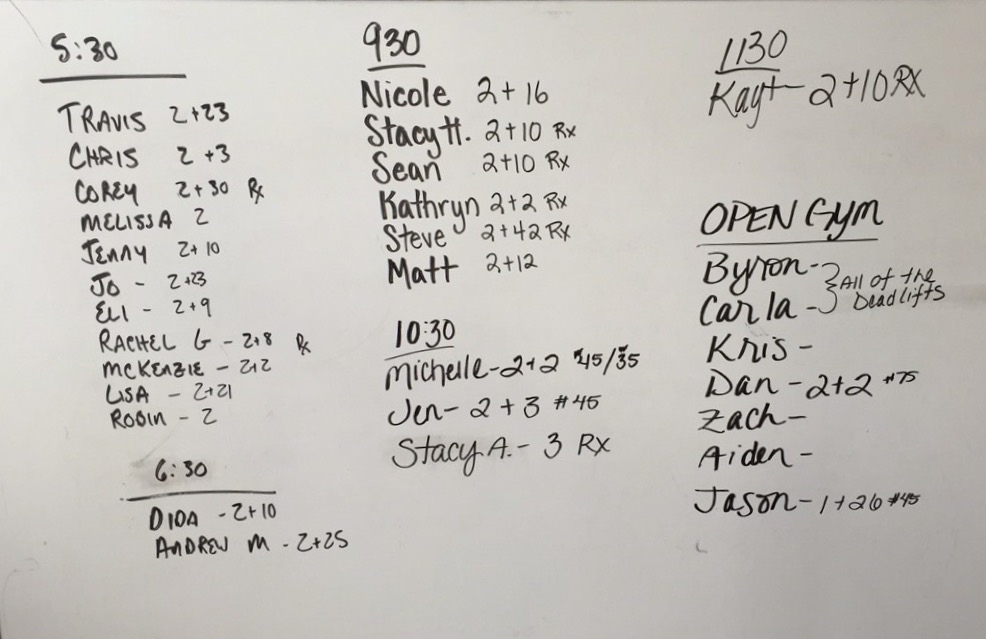 5:30
TRAVIS 2+23
CHRIS 2+3
COREY 2+30 Rx
MELISSA 2
JENNY 2+10
JO - 2+23
ELI - 2+9
RACHEL G - 2+8 Rx
MCKENZIE - 2+2
LISA - 2+21
ROBIN - 2
6:30
DIDA - 2+10
ANDREW M - 2+25
930
Nicole 2+16
Stacy H. 2+10 Rx
Sean 2+10 Rx
Kathryn 2+2 Rx
Steve 2+42 Rx
Matt 2+12
10:30
Michelle - 2+2 #45/35
Jen - 2+3 #45
Stacy A. - 3 Rx
1130
Kayt - 2+10 Rx
OPEN GYM
Byron - } All of the
Carla - } Deadlifts
Kris -
Dan - 2+2 #75
Zach -
Aiden -
Jason - 1+26 #45